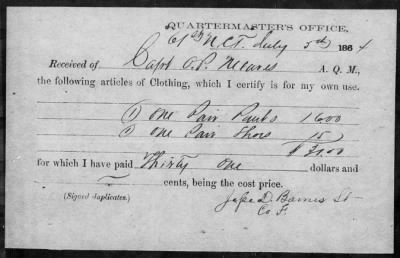 QUARTERMASTER'S OFFICE,
61st N.C.T. July 5th 1864
Received of Capt O.P. Meares A. Q. M.,
the following articles of Clothing, which I certify is for my own use.
(1) One Pair Pants 16 00
(1) One Pair Shoes 15
$31.00
for which I have paid Thirty One dollars and
cents, being the cost price.
(Signed duplicates.)
D. Barnes Lt
Co F.